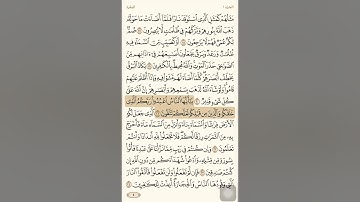 الجزء ١ البقرة
مَثَلُهُمْ كَمَثَلِ ٱلَّذِى ٱسْتَوْقَدَ نَارًا فَلَمَّآ أَضَآءَتْ مَا حَوْلَهُۥ
ذَهَبَ ٱللَّهُ بِنُورِهِمْ وَتَرَكَهُمْ فِى ظُلُمَٰتٍ لَّا يُبْصِرُونَ ١٧ صُمٌّۢ
بُكْمٌ عُمْىٌ فَهُمْ لَا يَرْجِعُونَ ١٨ أَوْ كَصَيِّبٍ مِّنَ ٱلسَّمَآءِ فِيهِ
ظُلُمَٰتٌ وَرَعْدٌ وَبَرْقٌ يَجْعَلُونَ أَصَٰبِعَهُمْ فِىٓ ءَاذَانِهِم مِّنَ
ٱلصَّوَٰعِقِ حَذَرَ ٱلْمَوْتِ وَٱللَّهُ مُحِيطٌۢ بِٱلْكَٰفِرِينَ ١٩ يَكَادُ ٱلْبَرْقُ
يَخْطَفُ أَبْصَٰرَهُمْ كُلَّمَآ أَضَآءَ لَهُم مَّشَوْا۟ فِيهِ وَإِذَآ أَظْلَمَ عَلَيْهِمْ
قَامُوا۟ وَلَوْ شَآءَ ٱللَّهُ لَذَهَبَ بِسَمْعِهِمْ وَأَبْصَٰرِهِمْ إِنَّ ٱللَّهَ عَلَىٰ
كُلِّ شَىْءٍ قَدِيرٌ ٢٠ يَٰٓأَيُّهَا ٱلنَّاسُ ٱعْبُدُوا۟ رَبَّكُمُ ٱلَّذِى
خَلَقَكُمْ وَٱلَّذِينَ مِن قَبْلِكُمْ لَعَلَّكُمْ تَتَّقُونَ ٢١ ٱلَّذِى جَعَلَ لَكُمُ
ٱلْأَرْضَ فِرَٰشًا وَٱلسَّمَآءَ بِنَآءً وَأَنزَلَ مِنَ ٱلسَّمَآءِ مَآءً فَأَخْرَجَ بِهِۦ
مِنَ ٱلثَّمَرَٰتِ رِزْقًا لَّكُمْ فَلَا تَجْعَلُوا۟ لِلَّهِ أَندَادًا وَأَنتُمْ
تَعْلَمُونَ ٢٢ وَإِن كُنتُمْ فِى رَيْبٍ مِّمَّا نَزَّلْنَا عَلَىٰ عَبْدِنَا فَأْتُوا۟
بِسُورَةٍ مِّن مِّثْلِهِۦ وَٱدْعُوا۟ شُهَدَآءَكُم مِّن دُونِ ٱللَّهِ إِن
كُنتُمْ صَٰدِقِينَ ٢٣ فَإِن لَّمْ تَفْعَلُوا۟ وَلَن تَفْعَلُوا۟ فَٱتَّقُوا۟ ٱلنَّارَ
ٱلَّتِى وَقُودُهَا ٱلنَّاسُ وَٱلْحِجَارَةُ أُعِدَّتْ لِلْكَٰفِرِينَ ٢٤
٤